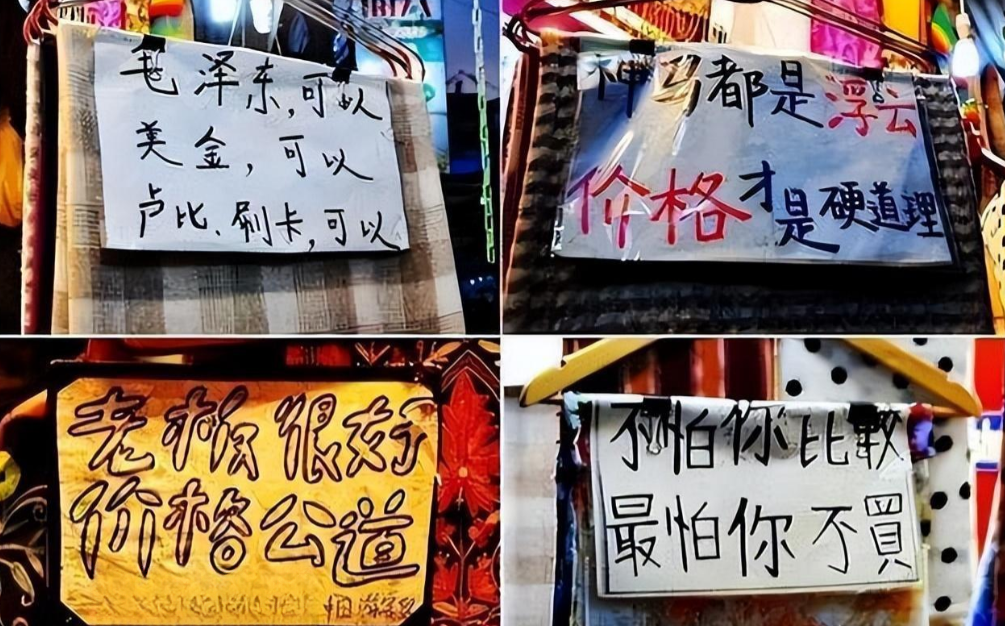 毛泽东,可以
美金,可以
卢比、刷卡,可以
神马都是浮云
价格才是硬道理
老板很好
价格公道
不怕你比較
最怕你不買